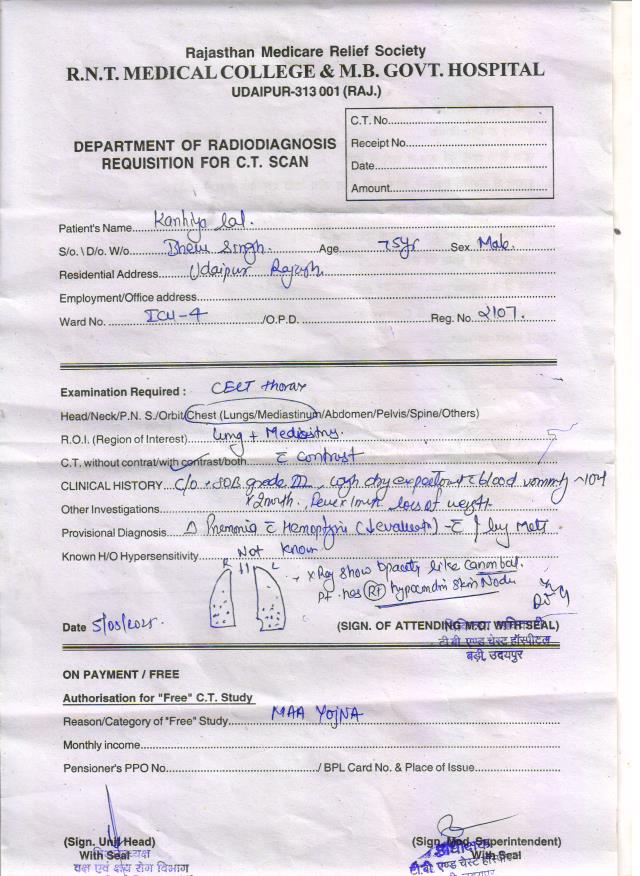 Rajasthan Medicare Relief Society
R.N.T. MEDICAL COLLEGE & M.B. GOVT. HOSPITAL
UDAIPUR-313 001 (RAJ.)
DEPARTMENT OF RADIODIAGNOSIS
REQUISITION FOR C.T. SCAN
C.T. No.
Receipt No.
Date
Amount
Patient's Name Kanhiya Lal.
S/o. \ D/o. W/o Bheru Singh. Age 75yr Sex Male.
Residential Address Udaipur
Employment/Office address
Ward No. ICU-4 /O.P.D. Reg. No. 2107.
Examination Required : CECT thorax
Head/Neck/P.N. S./Orbit/Chest (Lungs/Mediastinum/Abdomen/Pelvis/Spine/Others)
R.O.I. (Region of Interest) lung +
C.T. without contrat/with contrast/both c̄ contrast
CLINICAL HISTORY c/o SOB grade III, cough dry blood
Other Investigations loss of weight
Provisional Diagnosis Δ c̄ Hemoptysis
Known H/O Hypersensitivity Not known
R L
X Ray show opacity like
pt. has (Rt) skin
Date 5/03/2025
(SIGN. OF ATTENDING M.O. WITH SEAL)
टी.बी. एण्ड चेस्ट हॉस्पीटल
बड़ी, उदयपुर
ON PAYMENT / FREE
Authorisation for "Free" C.T. Study
Reason/Category of "Free" Study MAA YOJNA
Monthly income
Pensioner's PPO No. / BPL Card No. & Place of Issue
(Sign. Unit Head) (Sign. Med. Superintendent)
With Seal With Seal
वक्ष एवं क्षय रोग विभाग टी.बी. एण्ड चेस्ट